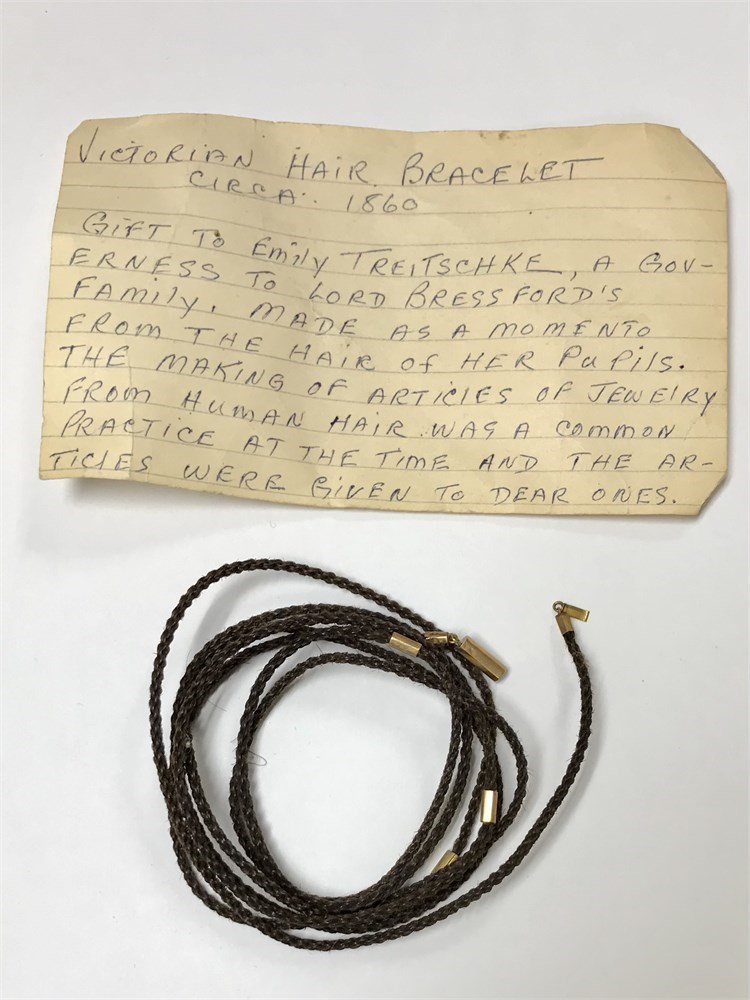 VICTORIAN HAIR BRACELET
CIRCA. 1860
GIFT TO EmIly TREITSCHKE, A GOV-
ERNESS TO LORD BRESSFORD'S
FAmIly. MADE AS A MOMENTO
FROM THE HAIR of HER PuPIlS.
THE MAKING OF ARTICLES OF JEWElRY
FROM HUMAN HAIR WAS A COMMON
PRACTICE AT THE TIME AND THE AR-
TICLES WERE GIVEN TO DEAR ONES.